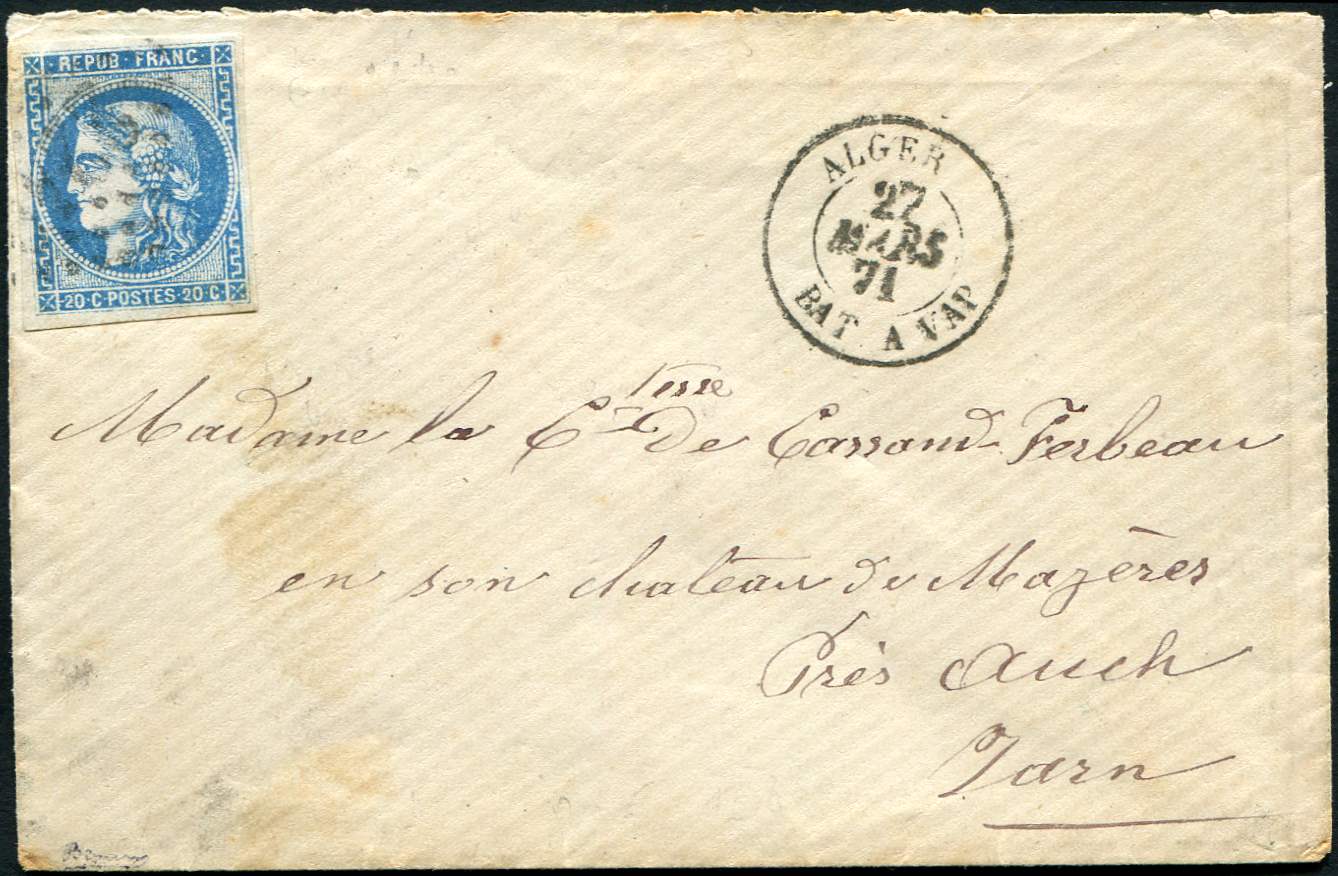 REPUB · FRANC ·
20 · C · POSTES · 20 · C ·
ALGER
27
MARS
71
BAT A VAP
Madame la Ctesse de Cassand-Ferbeau
en son chateau de Mazères
Près Auch
Tarn